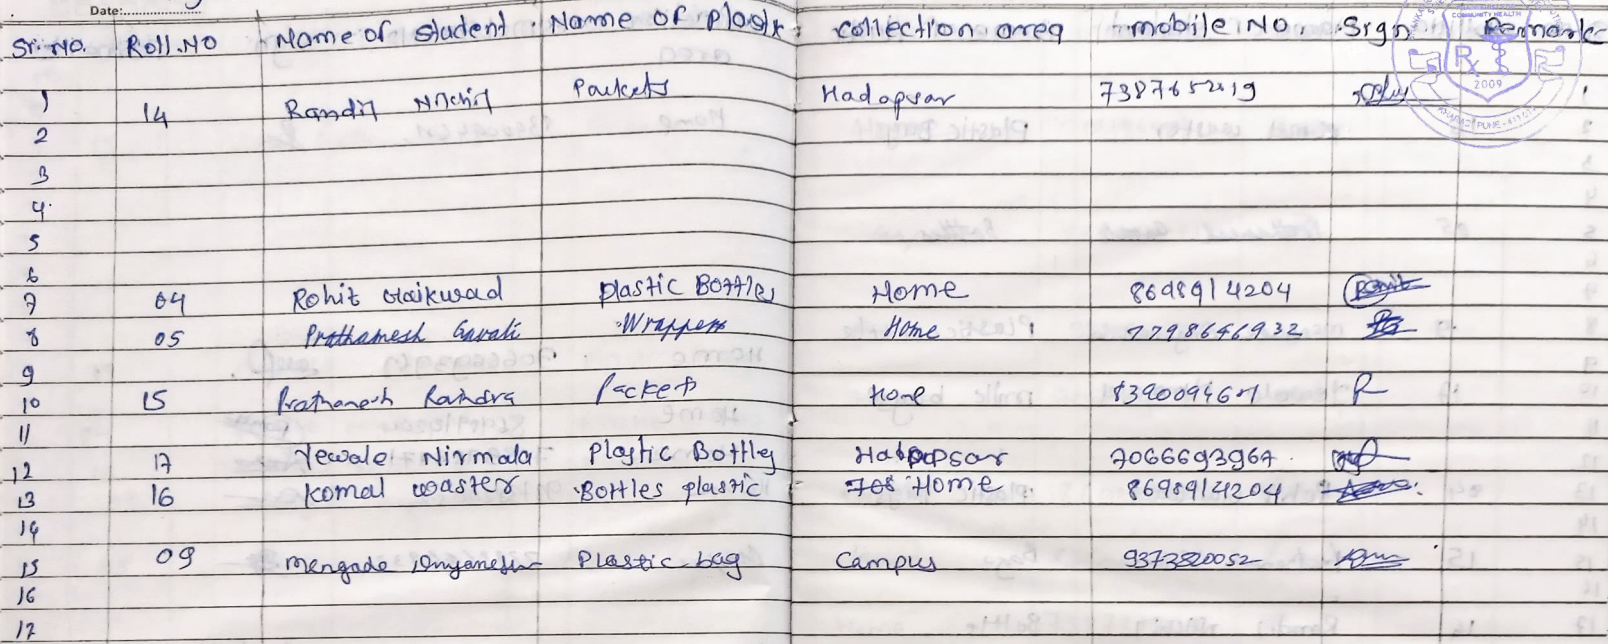 Date:
Sr.No. Roll.NO Name of Student Name of Plastic collection area mobile NO. Sign Remark
1 14 Randil Packets Hadapsar
2
3
4.
5
6
7 04 Rohit Gaikwad Plastic Bottles Home 8698914204
8 05 Prathamesh Gavali Wrappers Home 7798646932
9
10 15 Prathamesh Packet Home
11
12 17 Yewale Nirmala Plastic Bottles Hadapsar 7066693967.
13 16 Komal waster Bottles plastic Home 8698914204
14
15 09 Mengade Dnyaneshwar Plastic bag Campus 9373820052
16
17
COMMUNITY HEALTH
Rx
2009
KHARADI PUNE - 411 014